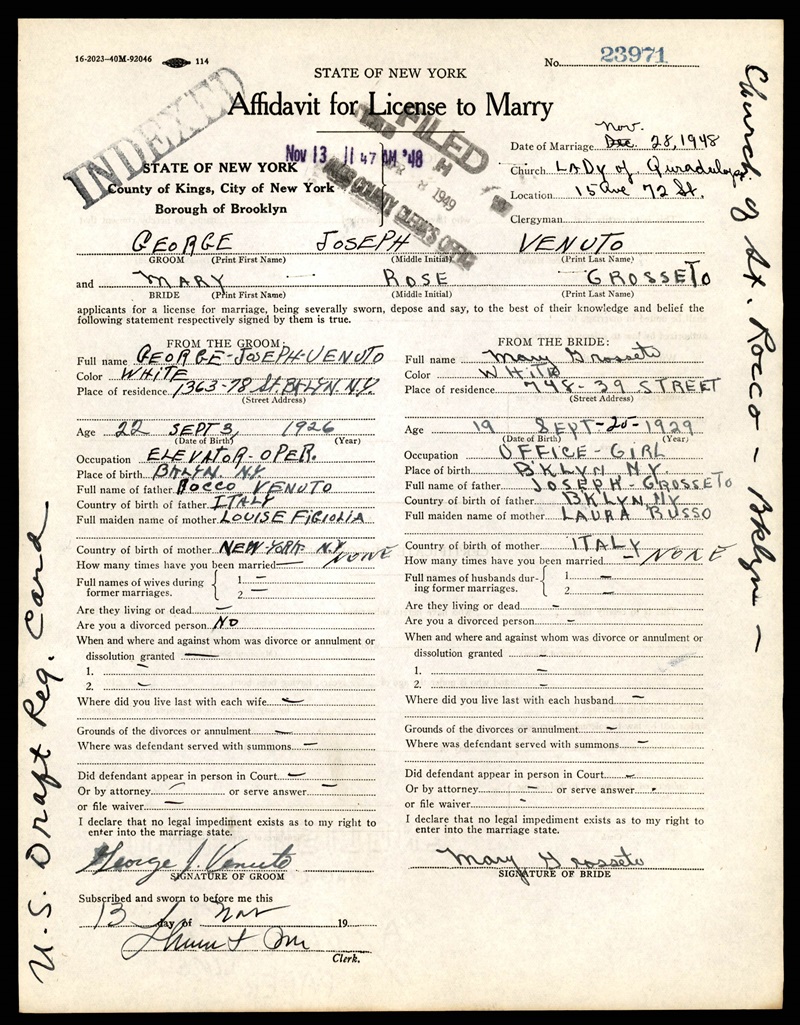 16-2023-40M-92046 114
No. 23971
STATE OF NEW YORK
Affidavit for License to Marry
INDEXED
FILED
Nov 13 11 47 AM '48
8 1949
KINGS COUNTY CLERK'S OFFICE
STATE OF NEW YORK
County of Kings, City of New York
Borough of Brooklyn
Date of Marriage Dec. Nov. 28, 1948
Church LADY of Guradelope
Location 15 Ave 72 St.
Clergyman
GEORGE JOSEPH VENUTO
GROOM (Print First Name) (Middle Initial) (Print Last Name)
and MARY ROSE GROSSETO
BRIDE (Print First Name) (Middle Initial) (Print Last Name)
applicants for a license for marriage, being severally sworn, depose and say, to the best of their knowledge and belief the
following statement respectively signed by them is true.
FROM THE GROOM:
Full name GEORGE-JOSEPH-VENUTO
Color WHITE
Place of residence 1363-78 St. BKLYN N.Y.
(Street Address)
Age 22 SEPT 3, 1926
(Date of Birth) (Year)
Occupation ELEVATOR-OPER.
Place of birth BKLYN. NY
Full name of father ROCCO VENUTO
Country of birth of father ITALY
Full maiden name of mother LOUISE
Country of birth of mother NEW-YORK N.Y
How many times have you been married — NONE
Full names of wives during
former marriages.
1 —
2 —
Are they living or dead —
Are you a divorced person NO
When and where and against whom was divorce or annulment or
dissolution granted —
1. —
2. —
Where did you live last with each wife —
Grounds of the divorces or annulment —
Where was defendant served with summons —
Did defendant appear in person in Court —
Or by attorney — or serve answer —
or file waiver —
I declare that no legal impediment exists as to my right to
enter into the marriage state.
George J. Venuto
SIGNATURE OF GROOM
Subscribed and sworn to before me this
13 day of Nov 19
Clerk.
FROM THE BRIDE:
Full name Mary Grosseto
Color WHITE
Place of residence 748-39 STREET
(Street Address)
Age 19 SEPT-25-1929
(Date of Birth) (Year)
Occupation OFFICE-GIRL
Place of birth BKLYN N.Y.
Full name of father JOSEPH-GROSSETO
Country of birth of father BKLYN, NY
Full maiden name of mother LAURA RUSSO
Country of birth of mother ITALY
How many times have you been married — NONE
Full names of husbands dur-
ing former marriages.
1 —
2 —
Are they living or dead —
Are you a divorced person —
When and where and against whom was divorce or annulment or
dissolution granted —
1. —
2. —
Where did you live last with each husband —
Grounds of the divorces or annulment —
Where was defendant served with summons —
Did defendant appear in person in Court —
Or by attorney — or serve answer -
or file waiver -
I declare that no legal impediment exists as to my right to
enter into the marriage state.
Mary Grosseto
SIGNATURE OF BRIDE
Church of St. Rocco - Bklyn -
U.S. Draft Reg. Card